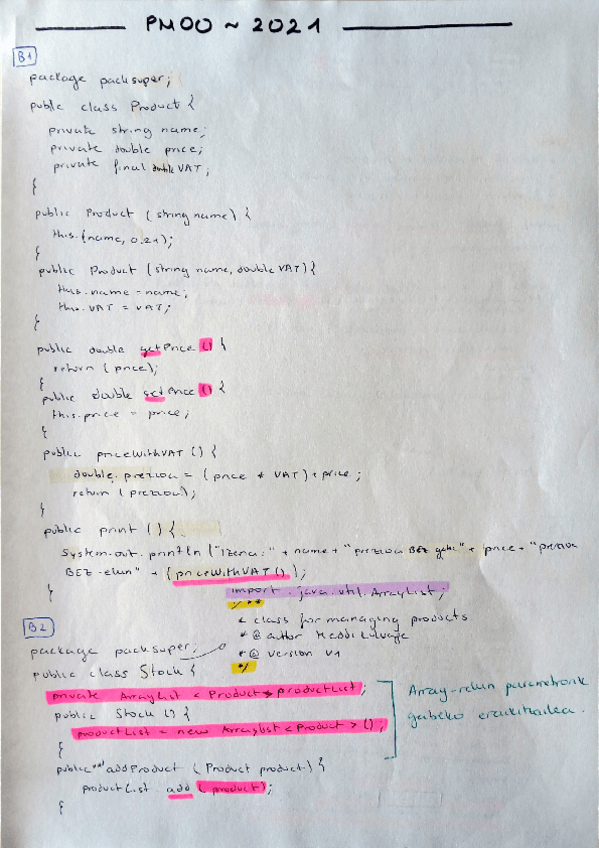 PMOO ~ 2021
B1
package packsuper;
public class Product {
private string name;
private double price;
private final double VAT;
}
public Product (string name) {
this.(name, 0.21);
}
public Product (string name, double VAT) {
this.name = name;
this.VAT = VAT;
}
public double getPrice () {
return (price);
}
public double setPrice () {
this.price = price;
}
public priceWithVAT () {
double prezioa = (price * VAT) + price;
return (prezioa);
}
public print () {
System.out.println ("Izena:" + name + "prezioa BEZ gabe" + price + "prezioa
BEZ-ekin" + (priceWithVAT());
}
import java.util.ArrayList;
/**
* class for managing products
* @ author
* @ version V1
*/
B2
package packsuper;
public class Stock {
private ArrayList < Product > productList;
public Stock () {
productList = new ArrayList < Product > ();
}
Array-rekin parametrorik
gabeko eraikitzailea.
public void addProduct (Product product) {
productList add (product);
}